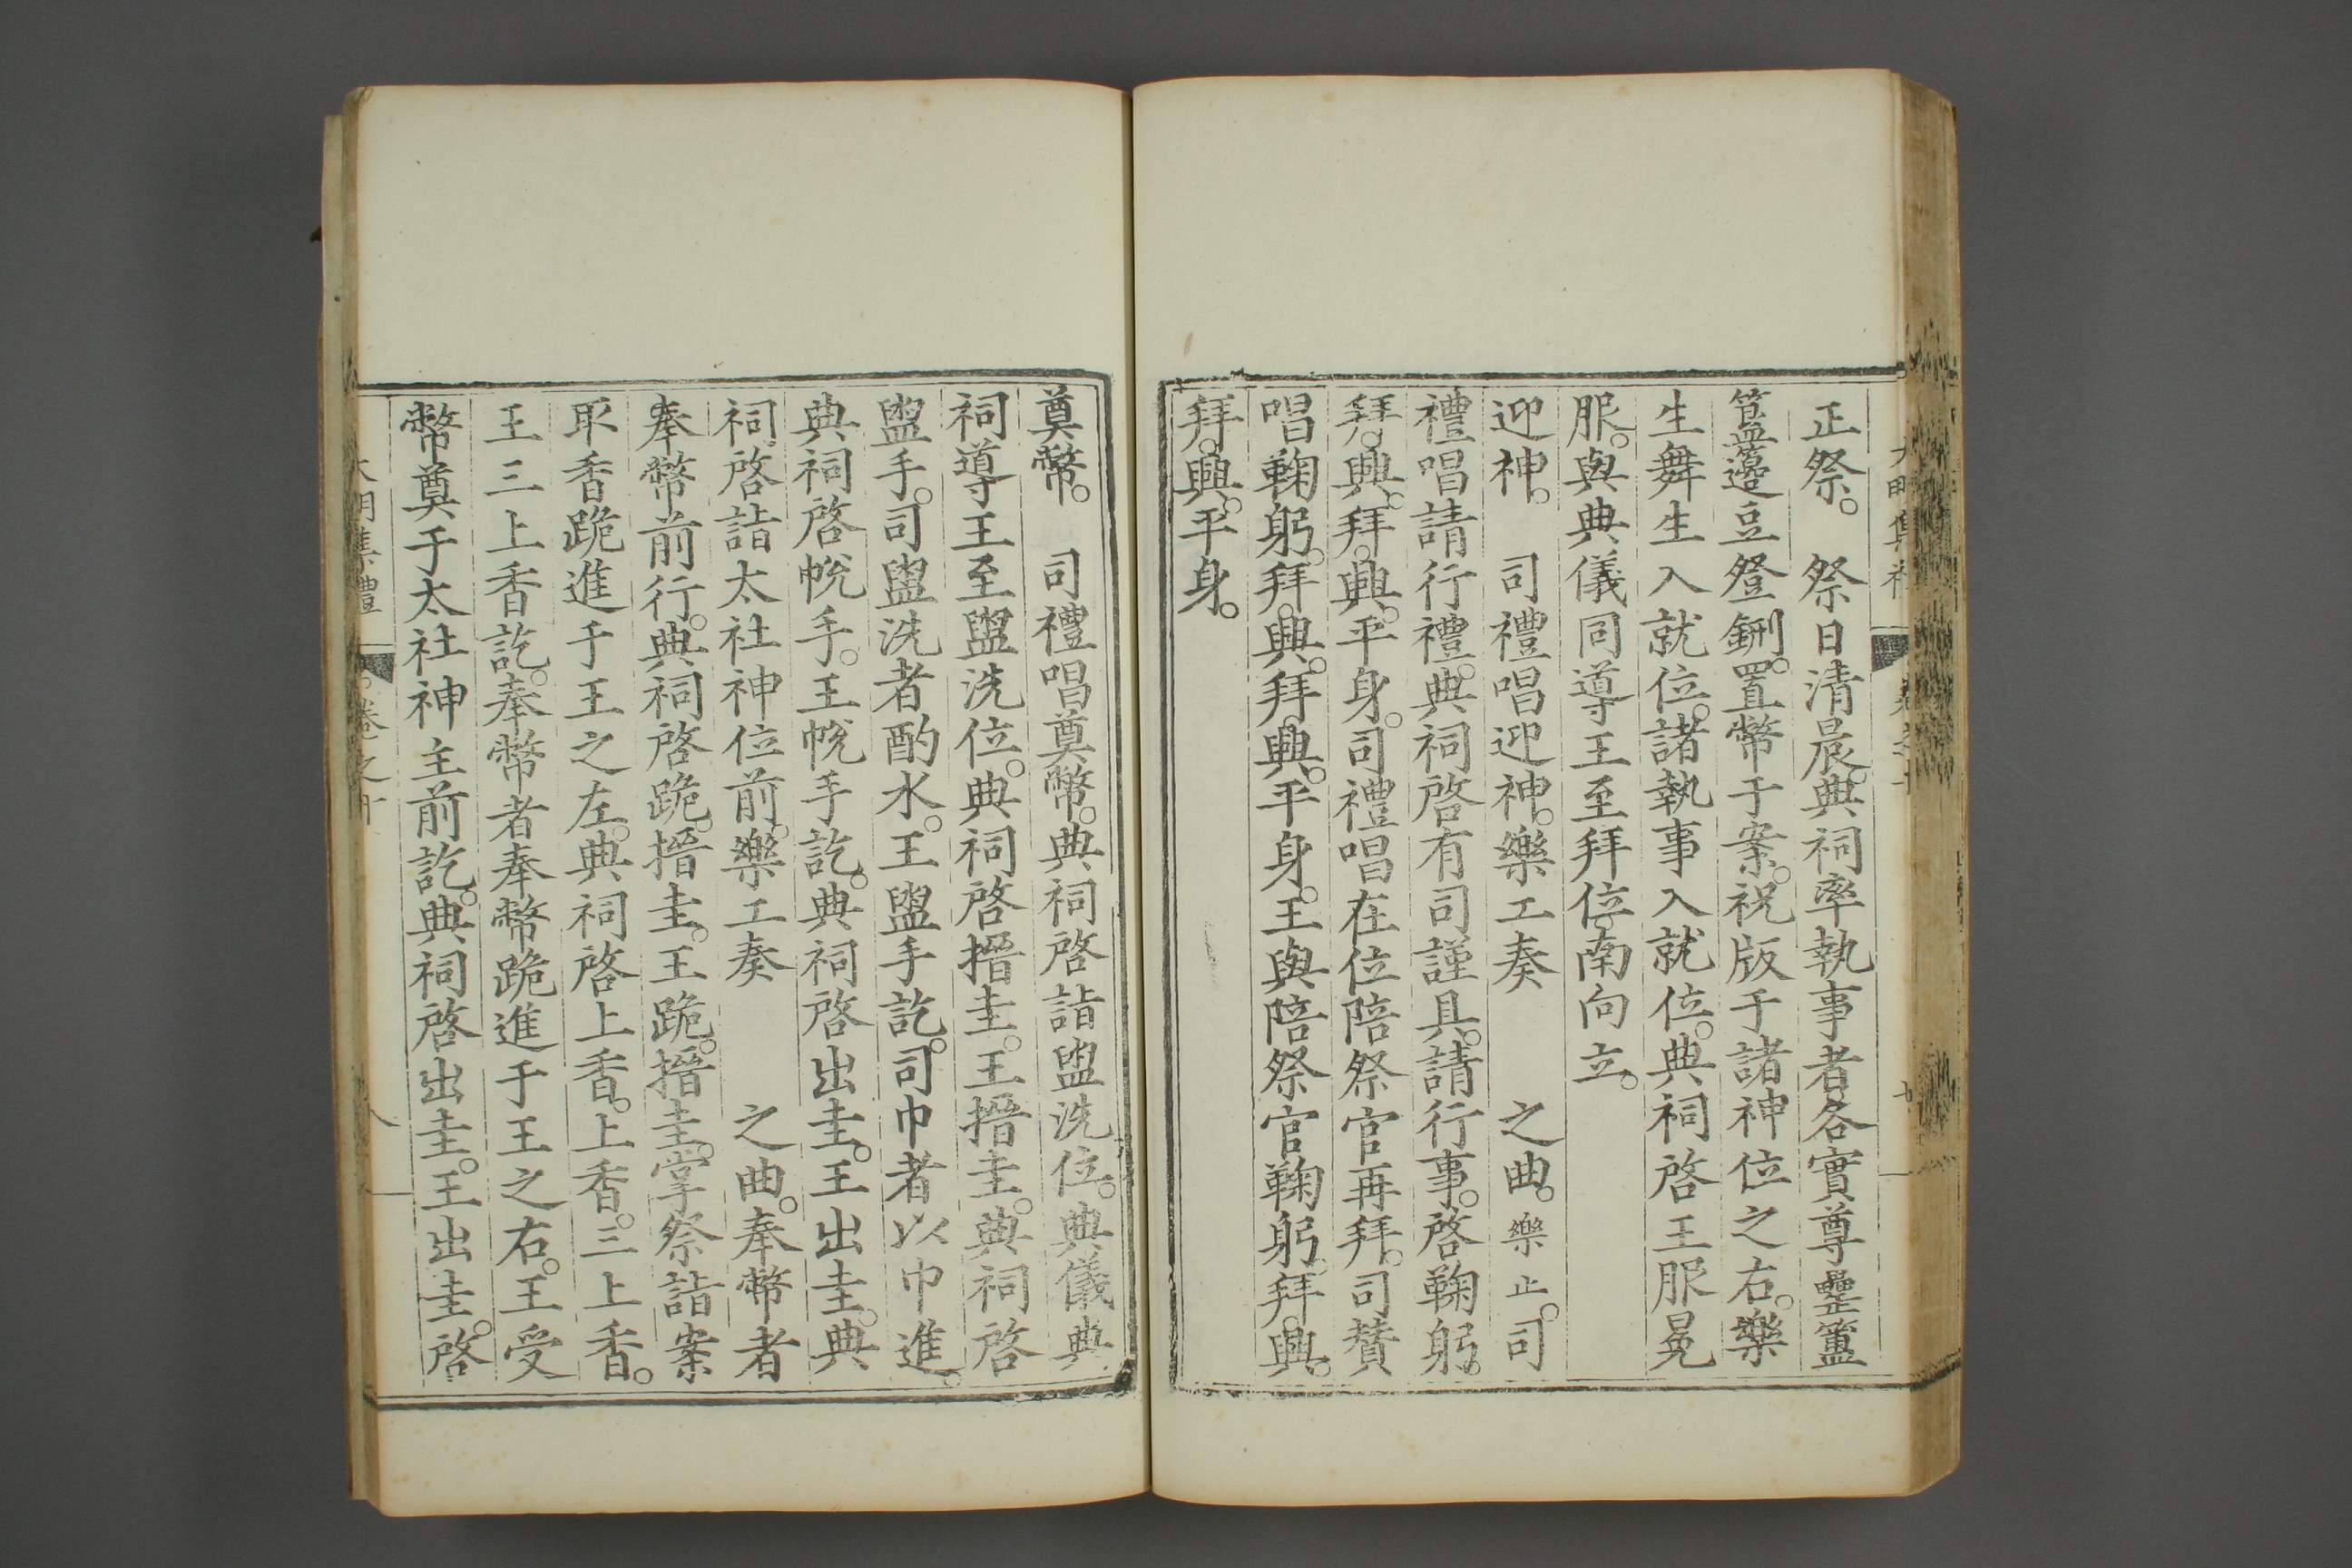 正祭。　祭日清晨。典祠率執事者。各實尊罍簠
簋籩豆登鉶。置幣于案。祝版于諸神位之右。樂
生舞生入就位。諸執事入就位。典祠啓王服冕
服。與典儀同導王至拜位。南向立。
迎神。　司禮唱迎神。樂工奏　　之曲。樂止。司
禮唱請行禮。典祠啓有司謹具。請行事。啓鞠躬。
拜。興。拜。興。平身。司禮唱在位陪祭官再拜。司贊
唱鞠躬。拜。興。拜。興。平身。王與陪祭官鞠躬。拜。興。
拜。興。平身。
奠幣。　司禮唱奠幣。典祠啓詣盥洗位。典儀典
祠導王至盥洗位。典祠啓搢圭。王搢圭。典祠啓
盥手。司盥洗者酌水。王盥手訖。司巾者以巾進。
典祠啓帨手。王帨手訖。典祠啓出圭。王出圭。典
祠啓詣太社神位前。樂工奏　　之曲。奉幣者
奉幣前行。典祠啓跪。搢圭。王跪。搢圭。掌祭詣案
取香跪進于王之左。典祠啓上香。上香。三上香。
王三上香訖。奉幣者奉幣跪進于王之右。王受
幣奠于太社神主前訖。典祠啓出圭。王出圭。啓
大明集禮　卷之十　八